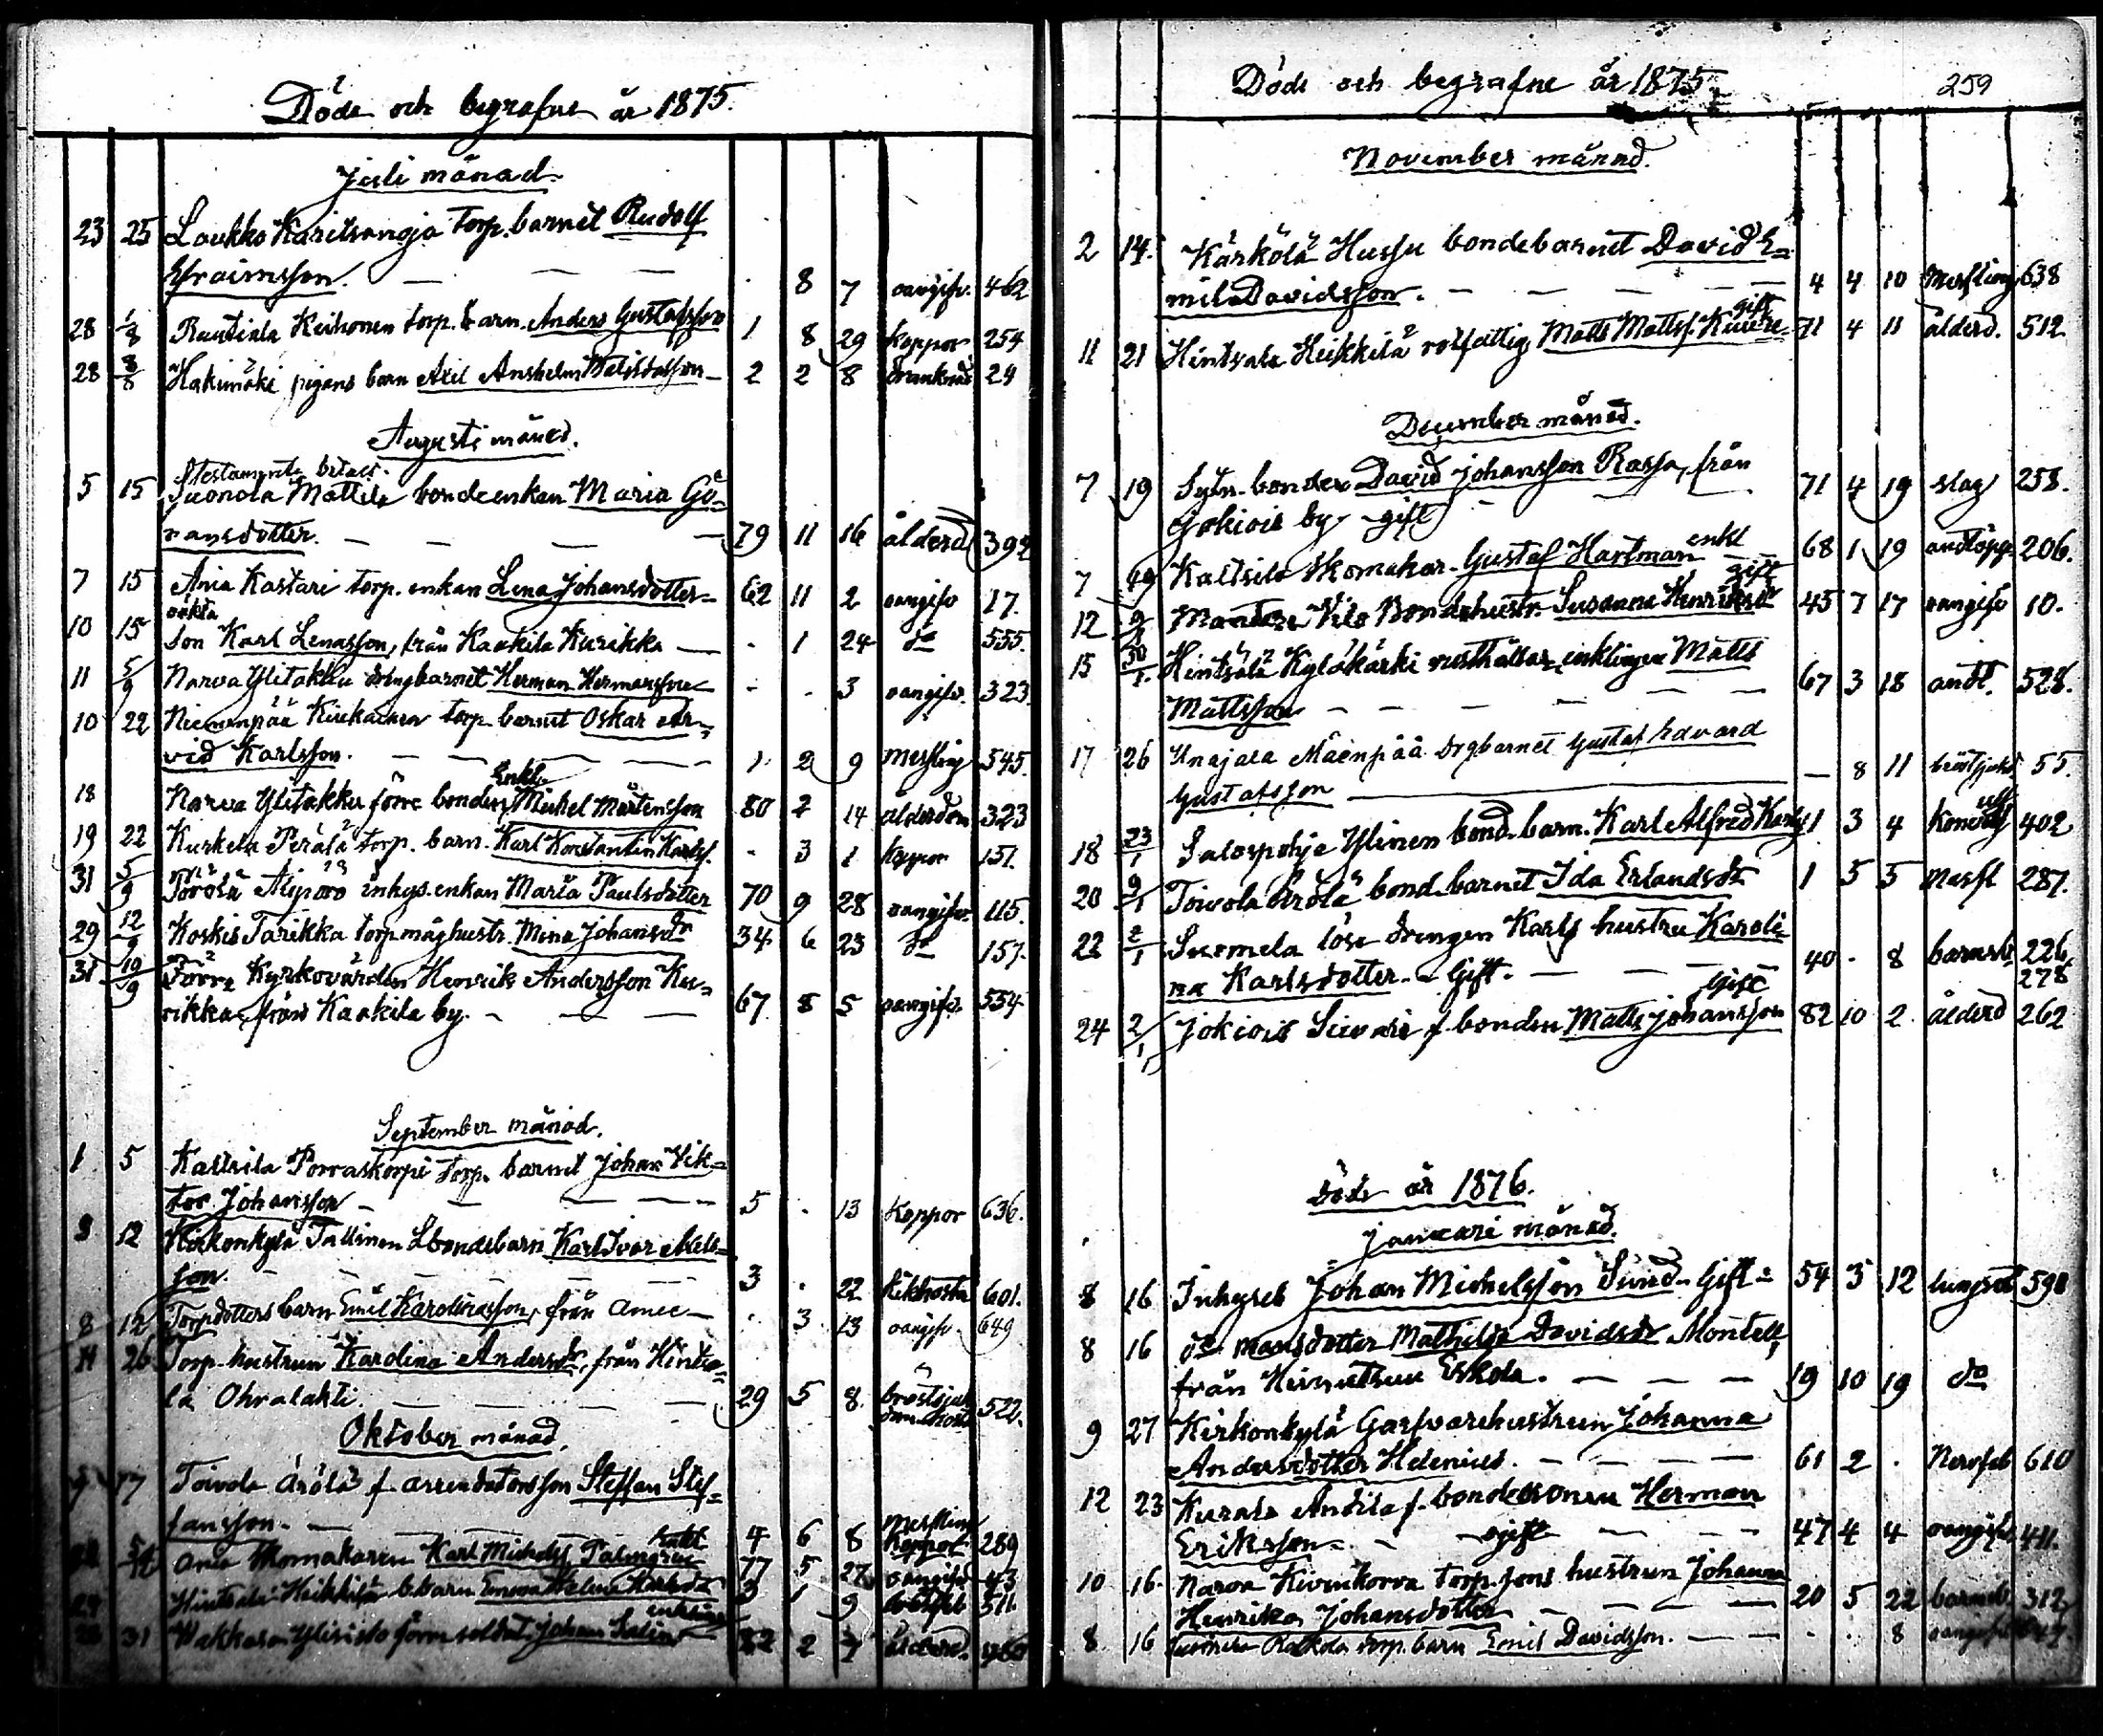 Döde och begrafne år 1875.
Juli månad.
23 25 Laukko Karitsanoja torp. barnet Rudolf
Efraimsson. — — — . 8 7 oangifv. 462
28 1/8 Rautiala Keihonen torp. barn. Anders Gustafsson 1 8 29 koppor 254
28 8/8 Hakimäki pigans barn Axel Anshelm — 2 2 8 drunknad 24
Augusti månad.
Testamente betalt.
5 15 Suonola Mattila bondeenkan Maria Gö-
ransdotter. — — — — 79 11 16 ålderd 392
7 15 Ania Kastari torp. enkan Lena Johansdotter 62 11 2 oangifv 17.
oäkta
10 15 son Karl Lenasson, från Kaakila Kurikka — . 1 24 do 555.
11 5/9 Narva Ylitakku drengbarnet Herman Hermansson . . 3 oangifv. 323.
10 22 Niemenpää torp. barnet Oskar Ar-
vid Karlsson. — — — — 1 2 9 Messling 545.
Enkl.
18 Narva Ylitakku förre bonden Michel Mårtensson 80 2 14 ålderdom 323
19 22 Kurkela Perälä torp. barn. Karl Konstantin Karlss. . 3 1 koppor 151.
31 5/9 Törölä Aliporo inhys. enkan Maria Paulsdotter 70 9 28 oangifv. 115.
29 12/9 Koskis Tarikka torp måghustr. Mina Johansdr 34 6 23 do 157.
31 19/9 Förre Kyrkovärden Henrik Andersson Ku-
rikka, från Kaakila by. — — — 67 8 5 oangifv. 554
September månad.
1 5 Kaltsila Porraskorpi torp. barnet Johan Vik-
tor Johansson — — — 5 . 13 koppor 636.
3 12 Kirkonkylä Tallinen Lbondebarn Karl Ivar Axels-
son. — — — — 3 . 22 kikhosta 601.
8 12 Torpdotters barn Emil Karolinasson, från Amee — . 3 13 oangifv 649
14 26 Torp. hustrun Karolina Andersdr, från Hintsa-
la Ohralahti. — — — — 29 5 8. bröstsjuk 522.
Oktober månad.
9 17 Toivola Arölä f arrendatorsson Steffan Stef-
fansson. — Messling 4 6 8 koppor 289
Ania skomakaren Karl Michelss Palmgren 77 5 27 oangifv 43
24 Hintsala Heikkilä b.barn Emma Karlsdr 3 1 9 511
enkling
31 Wakkara Ylisisto förre soldat Johan 82 2 7 ålderd.
Döde och begrafne år 1875. 259
November månad.
2 14. Kärkölä Hussu bondebarnet David E-
mil Davidsson. — — — — 4 4 10 Messling 638
gift
11 21 Hintsala Heikkilä rotfattig Matts Mattss. 71 4 11 ålderd. 512
December månad.
7 19 Sytn. bonden David Johansson Rassa, från
Jokiois by — gift — 71 4 19 slag 258.
enkl
7 19 Kaltsila skomakar. Gustaf Hartman 68 1 19 andtäpp 206.
gift
12 9/1 Mantere Vilo Bondehustr. Susanna Henriksdr 45 7 17 oangifv 10.
15 30/1. Hintsala Kyläkärki rusthållar, enklingen Matts
Mattsson — — — — 67 3 18 andt. 528.
17 26 Unajala Mäenpää drgbarnet Gustaf Edvard
Gustafsson — 8 11 bröstsjukd 55.
18 23/1 Salospohja Ylinen bond. barn. Karl Alfred Karls 1 3 4 402
20 9/1 Toivola Arölä bond. barnet Ida Erlandsdr 1 5 5 Messl 287.
22 2/1 Suomela löse drengen Karls hustru Karoli-
na Karlsdotter. - Gift. — — 40 . 8 barnsb. 226, 278
Gift
24 2/1 Jokiois Siivari f bonden Matts Johansson 82 10 2. ålderd 262
Döde år 1876.
Januari månad.
8 16 Inhyses Johan Michelsson Sund. Gift- 54 5 12 lungsot 590
8 16 do mansdotter Mathilda Davidsdr Montell,
från Eskola. — — — 19 10 19 do
9 27 Kirkonkylä Garfvarehustrun Johanna
Andersdotter Helenius. — — — 61 2 . Nervfeb 610
12 23 Kurala Anttila f. bondesonen Herman
Eriksson. — ogift — — 47 4 4 oangifv 411.
10 16. Narva Kivenkorva torp. sons hustrun Johanna
Henrika Johansdotter — — — 20 5 22 barnsb. 312
8. 16 Rakkola torp. barn Emil Davidsson. — — . . 8 oangifv